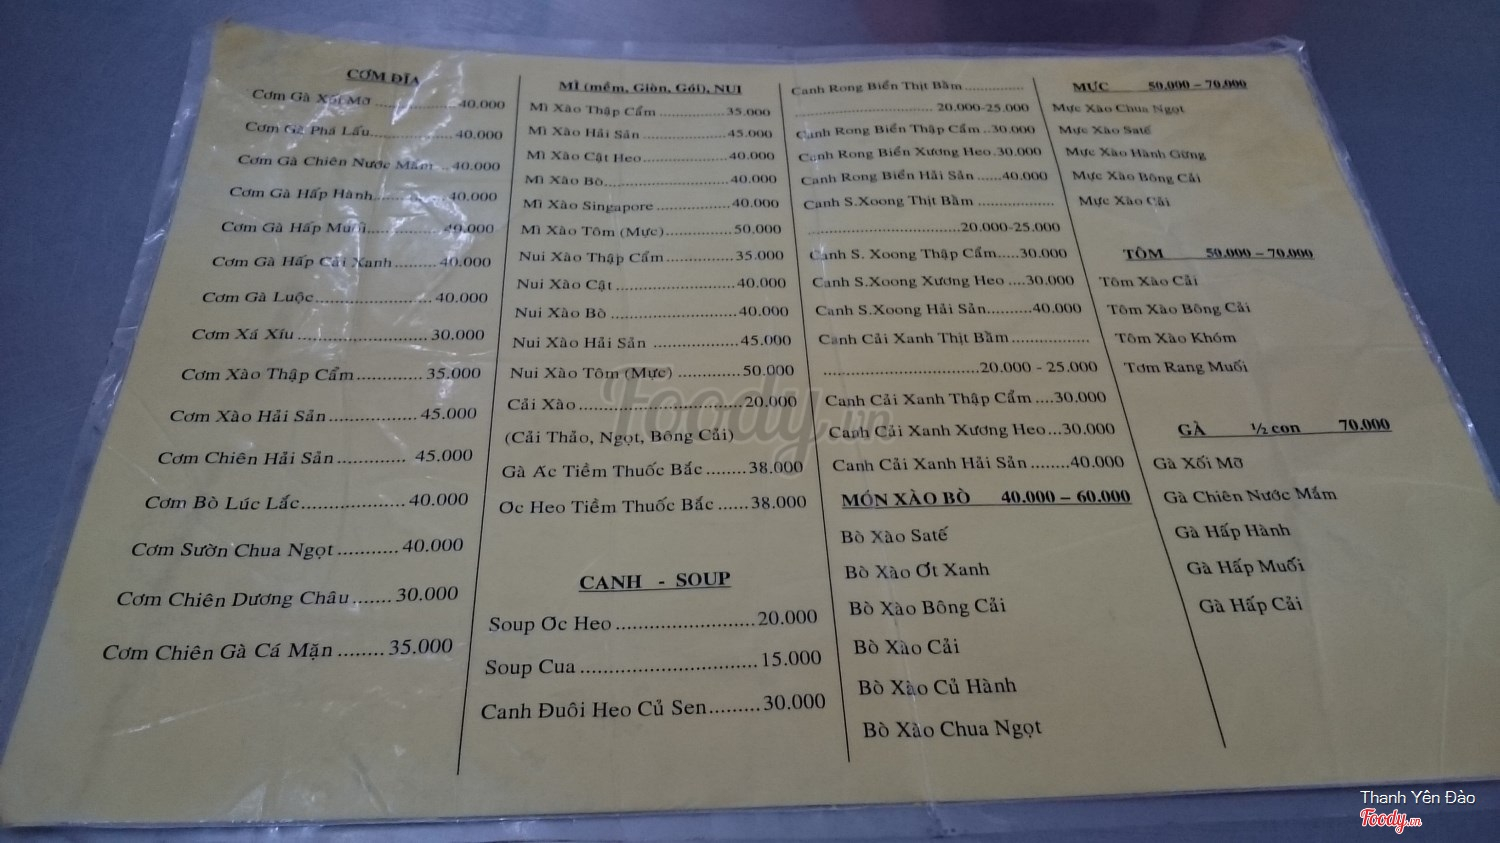 CƠM ĐĨA
Cơm Gà Xối Mỡ ................40.000
Cơm Gà Phá Lấu................40.000
Cơm Gà Chiên Nước Mắm ..40.000
Cơm Gà Hấp Hành.............40.000
Cơm Gà Hấp Muối..............40.000
Cơm Gà Hấp Cải Xanh.........40.000
Cơm Gà Luộc....................40.000
Cơm Xá Xíu .......................30.000
Cơm Xào Thập Cẩm............35.000
Cơm Xào Hải Sản ...............45.000
Cơm Chiên Hải Sản............ 45.000
Cơm Bò Lúc Lắc..................40.000
Cơm Sườn Chua Ngọt ...........40.000
Cơm Chiên Dương Châu.......30.000
Cơm Chiên Gà Cá Mặn ........35.000
MÌ (mềm, Giòn, Gói), NUI
Mì Xào Thập Cẩm ................35.000
Mì Xào Hải Sản ....................45.000
Mì Xào Cật Heo....................40.000
Mì Xào Bò............................40.000
Mì Xào Singapore .................40.000
Mì Xào Tôm (Mực)...............50.000
Nui Xào Thập Cẩm...............35.000
Nui Xào Cật .........................40.000
Nui Xào Bò ..........................40.000
Nui Xào Hải Sản ..................45.000
Nui Xào Tôm (Mực) .............50.000
Cải Xào................................20.000
(Cải Thảo, Ngọt, Bông Cải)
Gà Ac Tiềm Thuốc Bắc ........38.000
Oc Heo Tiềm Thuốc Bắc ......38.000
CANH - SOUP
Soup Oc Heo ........................20.000
Soup Cua ..............................15.000
Canh Đuôi Heo Củ Sen.........30.000
Canh Rong Biển Thịt Bằm ..............
................................20.000-25.000
Canh Rong Biển Thập Cẩm..30.000
Canh Rong Biển Xương Heo.30.000
Canh Rong Biển Hải Sản .....40.000
Canh S.Xoong Thịt Bằm .................
................................20.000-25.000
Canh S. Xoong Thập Cẩm.....30.000
Canh S.Xoong Xương Heo ....30.000
Canh S.Xoong Hải Sản..........40.000
Canh Cải Xanh Thịt Bằm.................
................................20.000 - 25.000
Canh Cải Xanh Thập Cẩm ....30.000
Canh Cải Xanh Xương Heo...30.000
Canh Cải Xanh Hải Sản ........40.000
MÓN XÀO BÒ 40.000 – 60.000
Bò Xào Satế
Bò Xào Ớt Xanh
Bò Xào Bông Cải
Bò Xào Cải
Bò Xào Củ Hành
Bò Xào Chua Ngọt
MỰC 50.000 – 70.000
Mực Xào Chua Ngọt
Mực Xào Satế
Mực Xào Hành Gừng
Mực Xào Bông Cải
Mực Xào Cải
TÔM 50.000 – 70.000
Tôm Xào Cải
Tôm Xào Bông Cải
Tôm Xào Khóm
Tơm Rang Muối
GÀ ½ con 70.000
Gà Xối Mỡ
Gà Chiên Nước Mắm
Gà Hấp Hành
Gà Hấp Muối
Gà Hấp Cải
Foody.vn
Thanh Yên Đào
Foody.vn